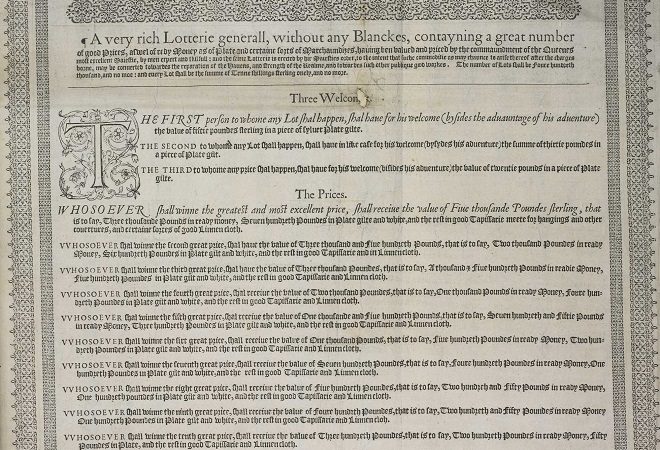 ¶A very rich Lotterie generall, without any Blanckes, contayning a great number
of good Prices, aswel of redy Money as of Plate and certaine sorts of Marchaundizes, having ben valued and priced by the commaundement of the Queenes
most excellent Majestie, by men expert and skilfull: and the same Lotterie is erected by her Majesties order, to the intent that such commoditie as may chaunce to arise thereof after the charges
borne, may be converted towardes the reparation of the Havens, and strength of the Realme, and towardes such other publique good workes. The number of Lots shall be Foure hundreth
thousand, and no moe: and every Lot shall be the summe of Tenne shillings sterling onely, and no more.
Three Welcomes.
THE FIRST person to whome any Lot shal happen, shal have for his welcome (bysides the advauntage of his adventure)
the value of fiftie poundes sterling in a piece of sylver Plate gilte.
THE SECOND to whome any Lot shall happen, shall have in like case for his welcome (bysydes his adventure) the summe of thirtie poundes in
a piece of Plate gilt.
THE THIRD to whome any price shal happen, shal have for his welcome (bisides his adventure) the value of twentie pounds in a piece of Plate
gilte.
The Prices.
WHOSOEVER shall winne the greatest and most excellent price, shall receive the value of Five thousande Poundes sterling, that
is to say, Three thousande Pounds in ready money, Seven hundreth Poundes in Plate gilte and white, and the rest in good Tapissarie meete for hangings and other
covertures, and certaine sortes of good Linnen cloth.
VVHOSOEVER shall winne the second great price, shall have the value of Three thousand and Five hundreth Pounds, that is to say, Two thousand Poundes in ready
Money, Six hundreth Poundes in Plate gilte and white, and the rest in good Tapissarie and in Linnen cloth.
VVHOSOEVER shall winne the third great price, shall have the value of Three thousand Poundes, that is to say, A thousand & Five hundreth Pounds in readie Money,
Five hundreth Poundes in Plate gilte and white, and the rest in good Tapissarie and Linnen cloth.
VVHOSOEVER shall winne the fourth great price, shall receive the value of Two thousand Poundes, that is to say, One thousand Poundes in ready Money, Foure hun-
dreth Poundes in Plate gilte and white, and the rest in good Tapissarie and Linnen cloth.
VVHOSOEVER shall winne the fifth great price, shall receive the value of One thousand and Five hundreth Pounds, that is to say, Seven hundreth and Fiftie Pounds
in ready Money, Three hundreth Poundes in Plate gilte and white, and the rest in good Tapissarie and Linnen cloth.
VVHOSOEVER shall winne the sixt great price, shall receive the value of One thousand Pounds, that is to say, Five hundreth Poundes in ready Money, Two hun-
dreth Poundes in Plate gilte and white, and the rest in good Tapissarie and Linnen cloth.
VVHOSOEVER shall winne the seventh great price, shall receive the value of Seven hundreth Poundes, that is to say, Foure hundreth Poundes in ready Money, One
hundreth Pounds in Plate gilt and white, and the rest in good Tapissarie and Linnen cloth.
VVHOSOEVER shall winne the eight great price, shall receive the value of Five hundreth Poundes, that is to say, Two hundreth and Fifty Poundes in ready Money,
One hundreth poundes in Plate gilt and white, and the rest in good Tapissarie and Linnen cloth.
VVHOSOEVER shall winne the ninth great price, shall receive the value of Foure hundreth Pounds, that is to say, Two hundreth and Fifty Poundes in ready Money,
and the rest in good Tapissarie and Linnen cloth.
VVHOSOEVER shall winne the tenth great price, shall receive the value of Three hundreth Pounds, that is to say, Two hundreth Poundes in ready Money, Fifty
Poundes in Plate, and the rest in good Tapissarie and Linnen cloth.